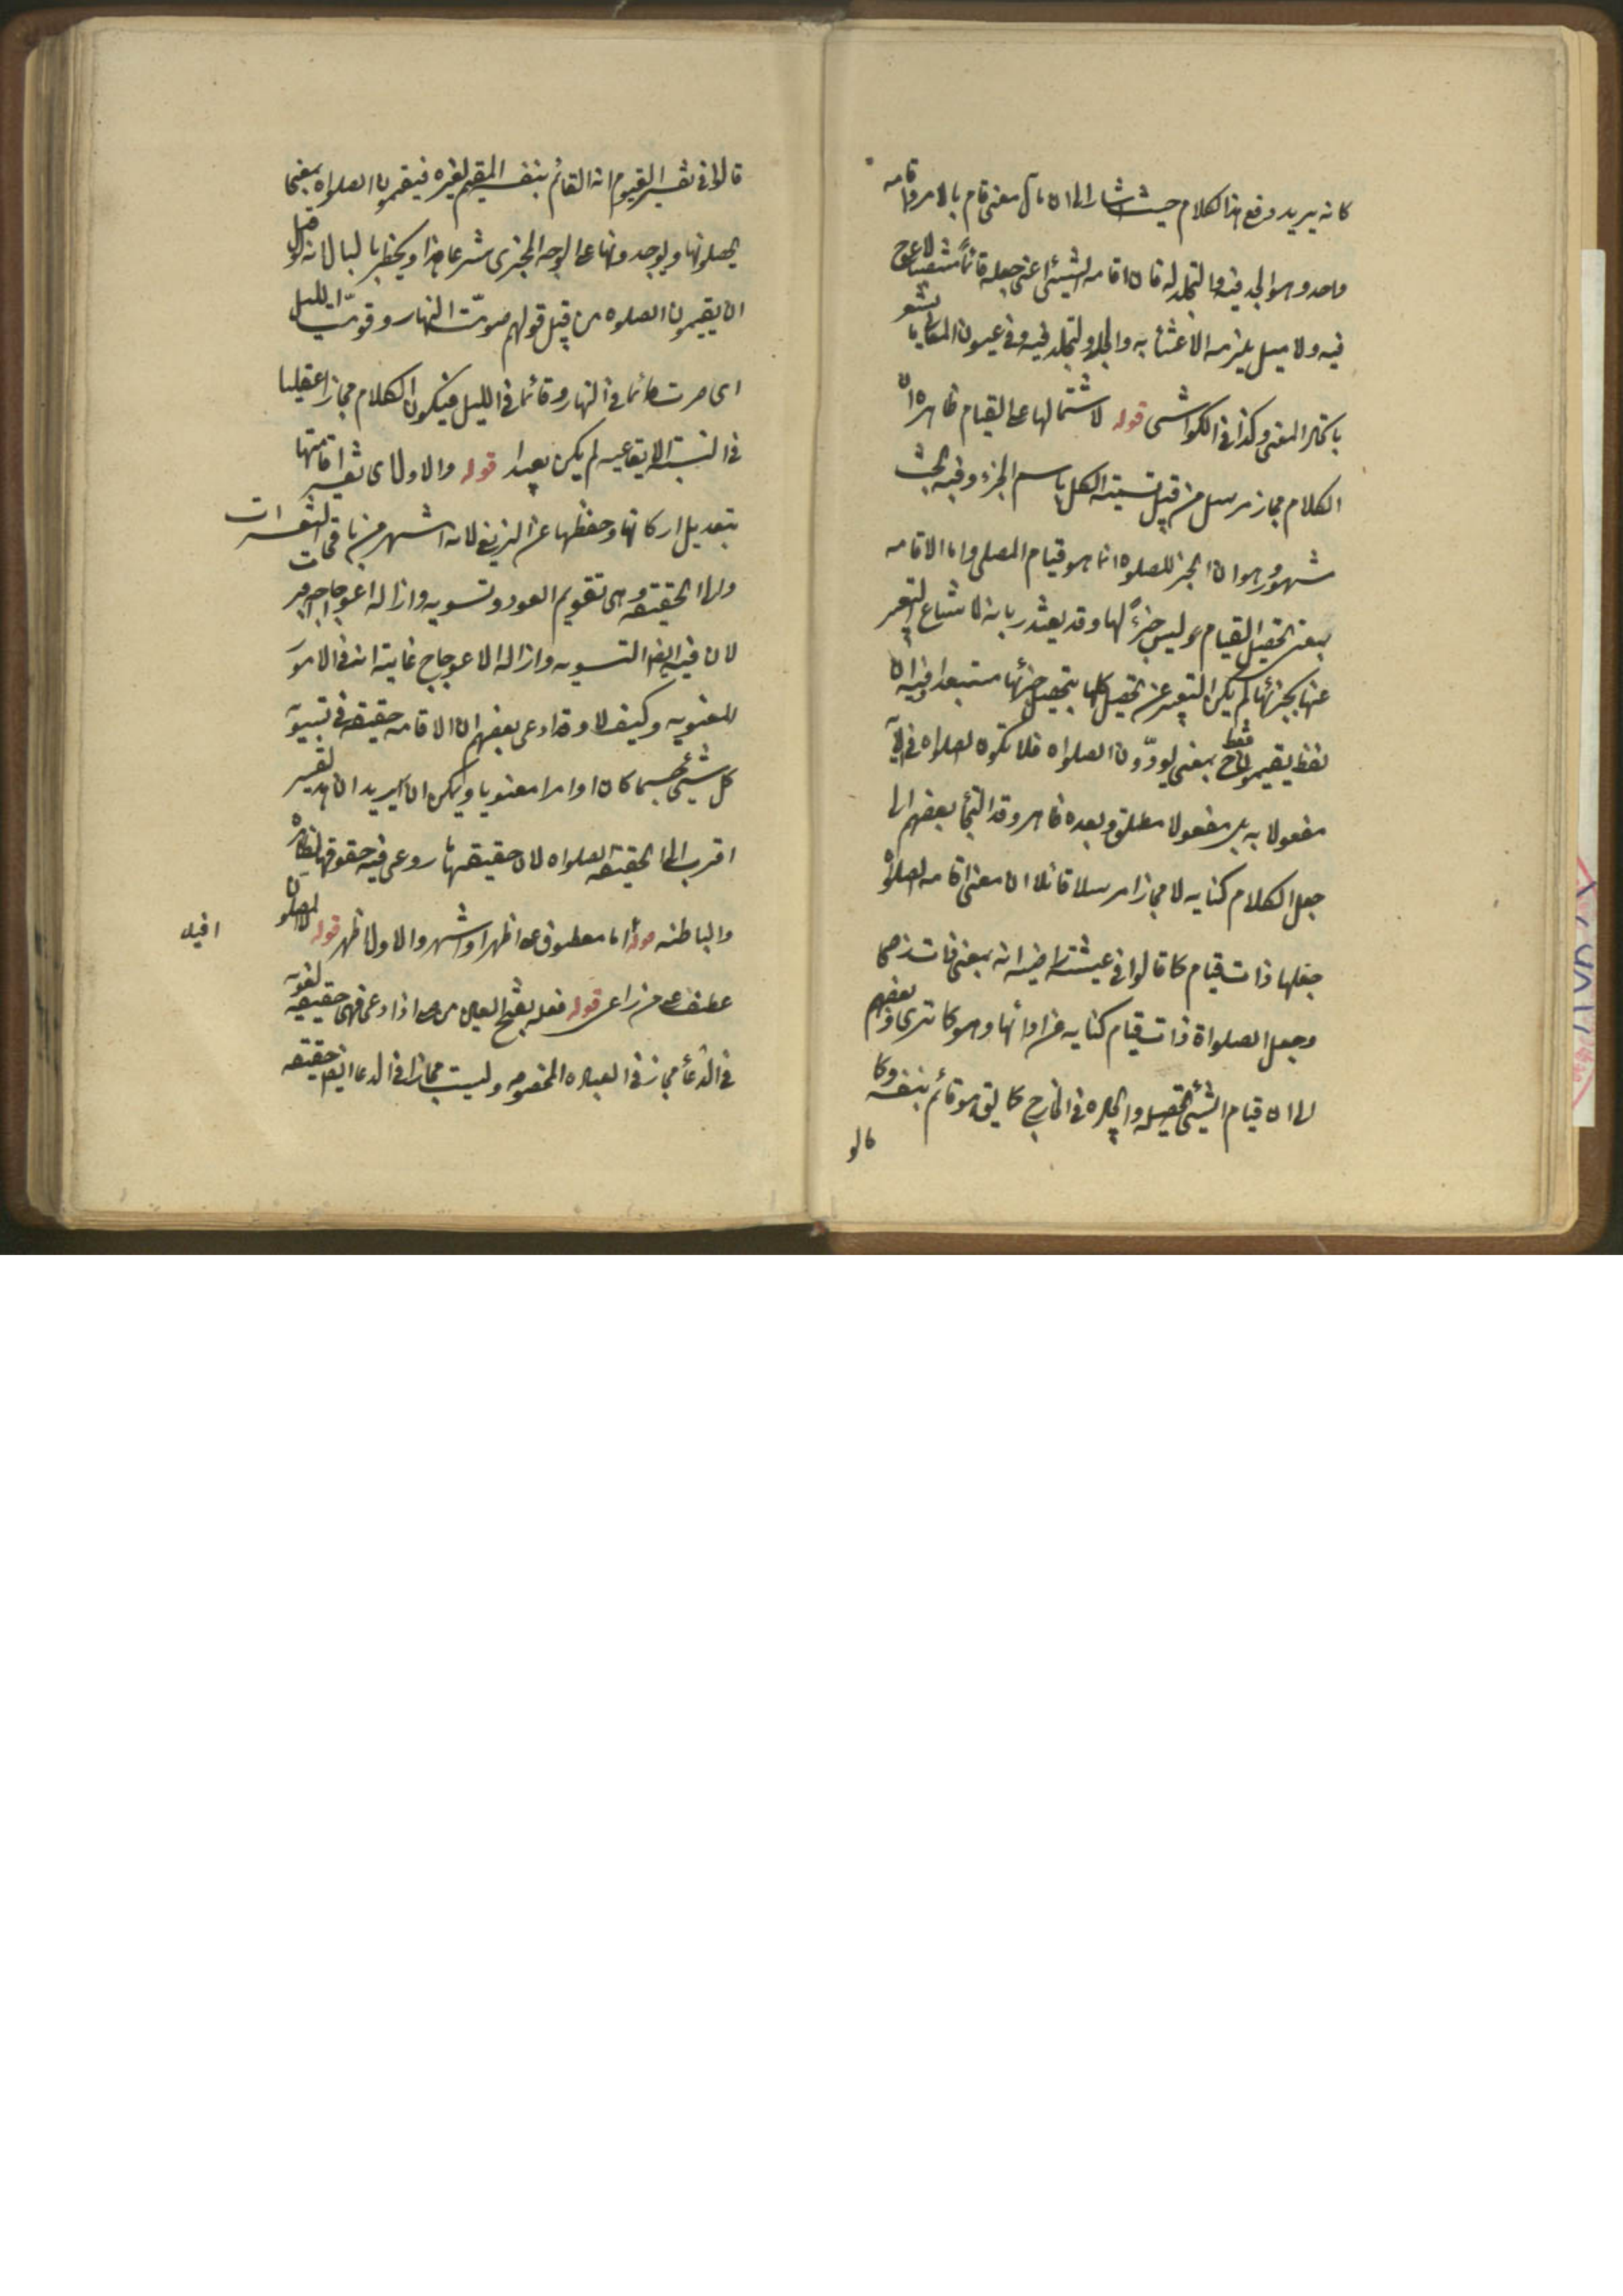 كانه يريد دفع هذا الكلام حيث اشار الى ان مآل معنى قام بالامر واقامه
واحد وهو الجد فيه والتجلد له فان اقامه الشيئ اعنى جعله قائماً منتصبا لا عوج
فيه ولا ميل يلزمه الاعتناء به والجد والتجلد فيه وفى عيون المعانى
باكثر المعنى وكذا فى الكواشى قوله لاشتمالها على القيام ظاهره ان
الكلام مجاز مرسل من قبيل تسمية الكل باسم الجزء وفيه بحث
مشهور وهو ان الجزء للصلوه انما هو قيام المصلى واما الاقامه
بمعنى تحصيل القيام فليس جزءً لها وقد يعتذر بانه لما شاع التعبير
عنها بجزئها لم يكن التعبير عن تحصيل كلها بتحصيل جزئها مستبعدا وفيه ان
لفظ يقيمون فقط ح بمعنى يودّون الصلواه فلا تكون الصلواه فى الآيه
مفعولا به بل مفعولا مطلق وبعده ظاهر وقد التجأ بعضهم الى
جعل الكلام كنايه لا مجازا مرسلا قائلا ان معنى اقامه الصلوة
جعلها ذات قيام كما قالوا فى عيشة راضيه انه بمعنى ذات رضى
وجعل الصلواة ذات قيام كنايه عن ادائها وهو كما ترى وبعضهم
الى ان قيام الشيئ تحصيله وايجاده فى الخارج كما يق هو قائم بنفسه وكما
قالو
قالوا فى تفسير القيوم انه القائم بنفسه المقيم لغيره فيقيمون الصلواه بمعنى
يحصلونها ويوجدونها على الوجه المجزى شرعا هذا ويخطر بالبال انه لو قيل
ان يقيمون الصلوه من قبيل قولهم صوّمت النهار وقوّمت الليل
اى صرت صائما فى النهار وقائما فى الليل فيكون الكلام مجازا عقليا
فى النسبة الايقاعيه لم يكن بعيدا قوله والاول اى تفسير اقامتها
بتعديل اركانها وحفظها عن الزيغ لانه اشهر من باقى التفسيرات
والى الحقيقه وهى تقويم العود وتسويه وازاله اعوجاجه اقرب
لان فيه ايضا التسويه وازاله الاعوجاج غايته انه فى الامور
المعنويه وكيف لا وقد ادعى بعضهم ان الاقامه حقيقه فى تسوية
كل شيئ جسما كان او امرا معنويا ويمكن ان يريد ان هذا تفسير
اقرب الى الحقيقه الصلواه لان حقيقتها ما روعى فيه حقوقها الظاهره
والباطنه قوله اما معطوف على اظهر او اشهر والاول اظهر قوله المصلون
عطف على من راعى قوله فعله بفتح العين من صلى اذا دعى فهى حقيقيه لغويه
فى الدعأ مجاز فى العباده المخصوصه وليست مجازا فى الدعا ايضا حقيقه